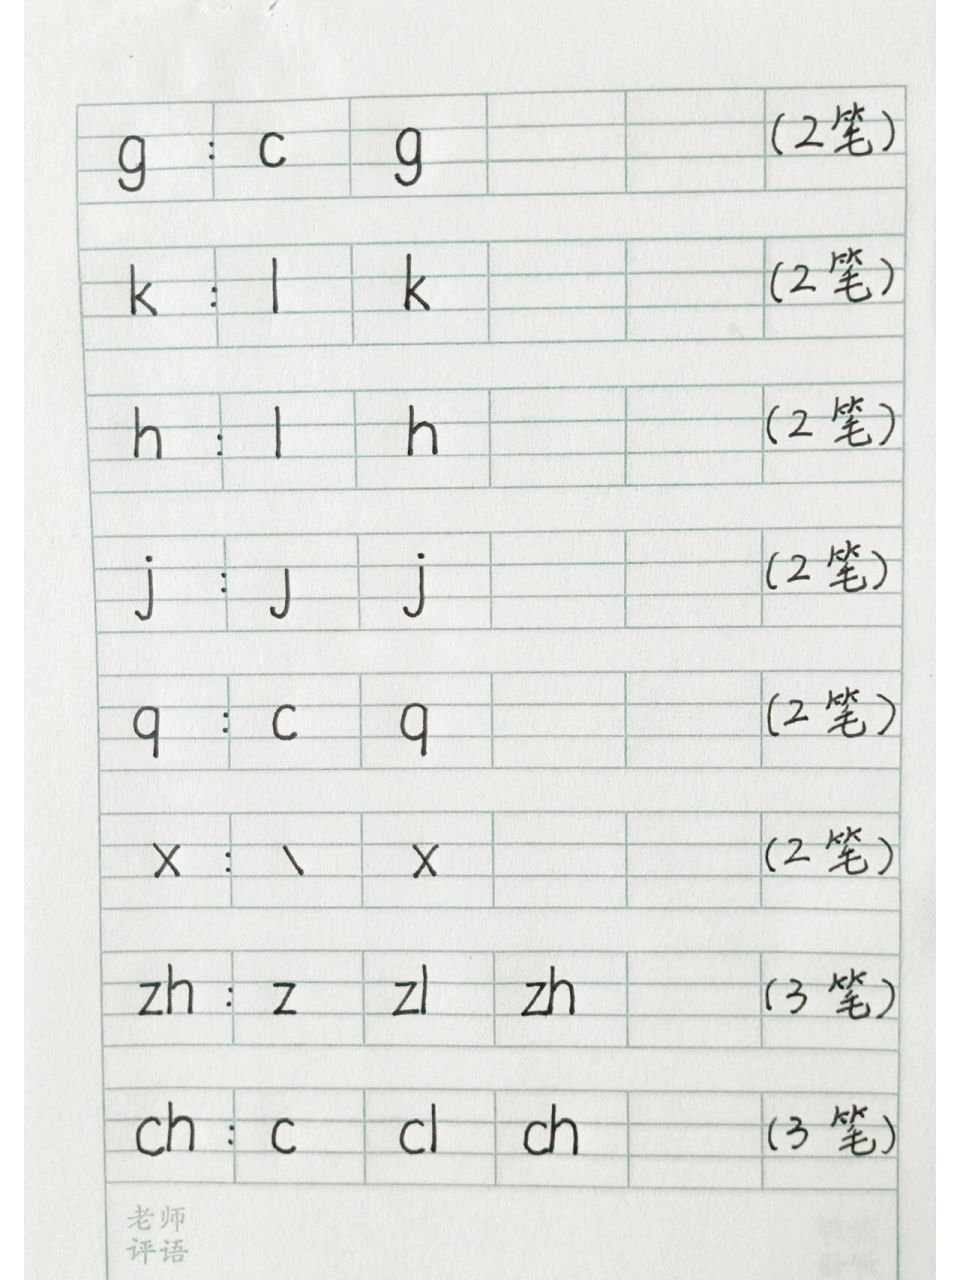 g : c g (2笔)
k : l k (2笔)
h : l h (2笔)
j : ȷ j (2笔)
q : c q (2笔)
x : \ x (2笔)
zh : z zl zh (3笔)
ch : c cl ch (3笔)
老师
评语